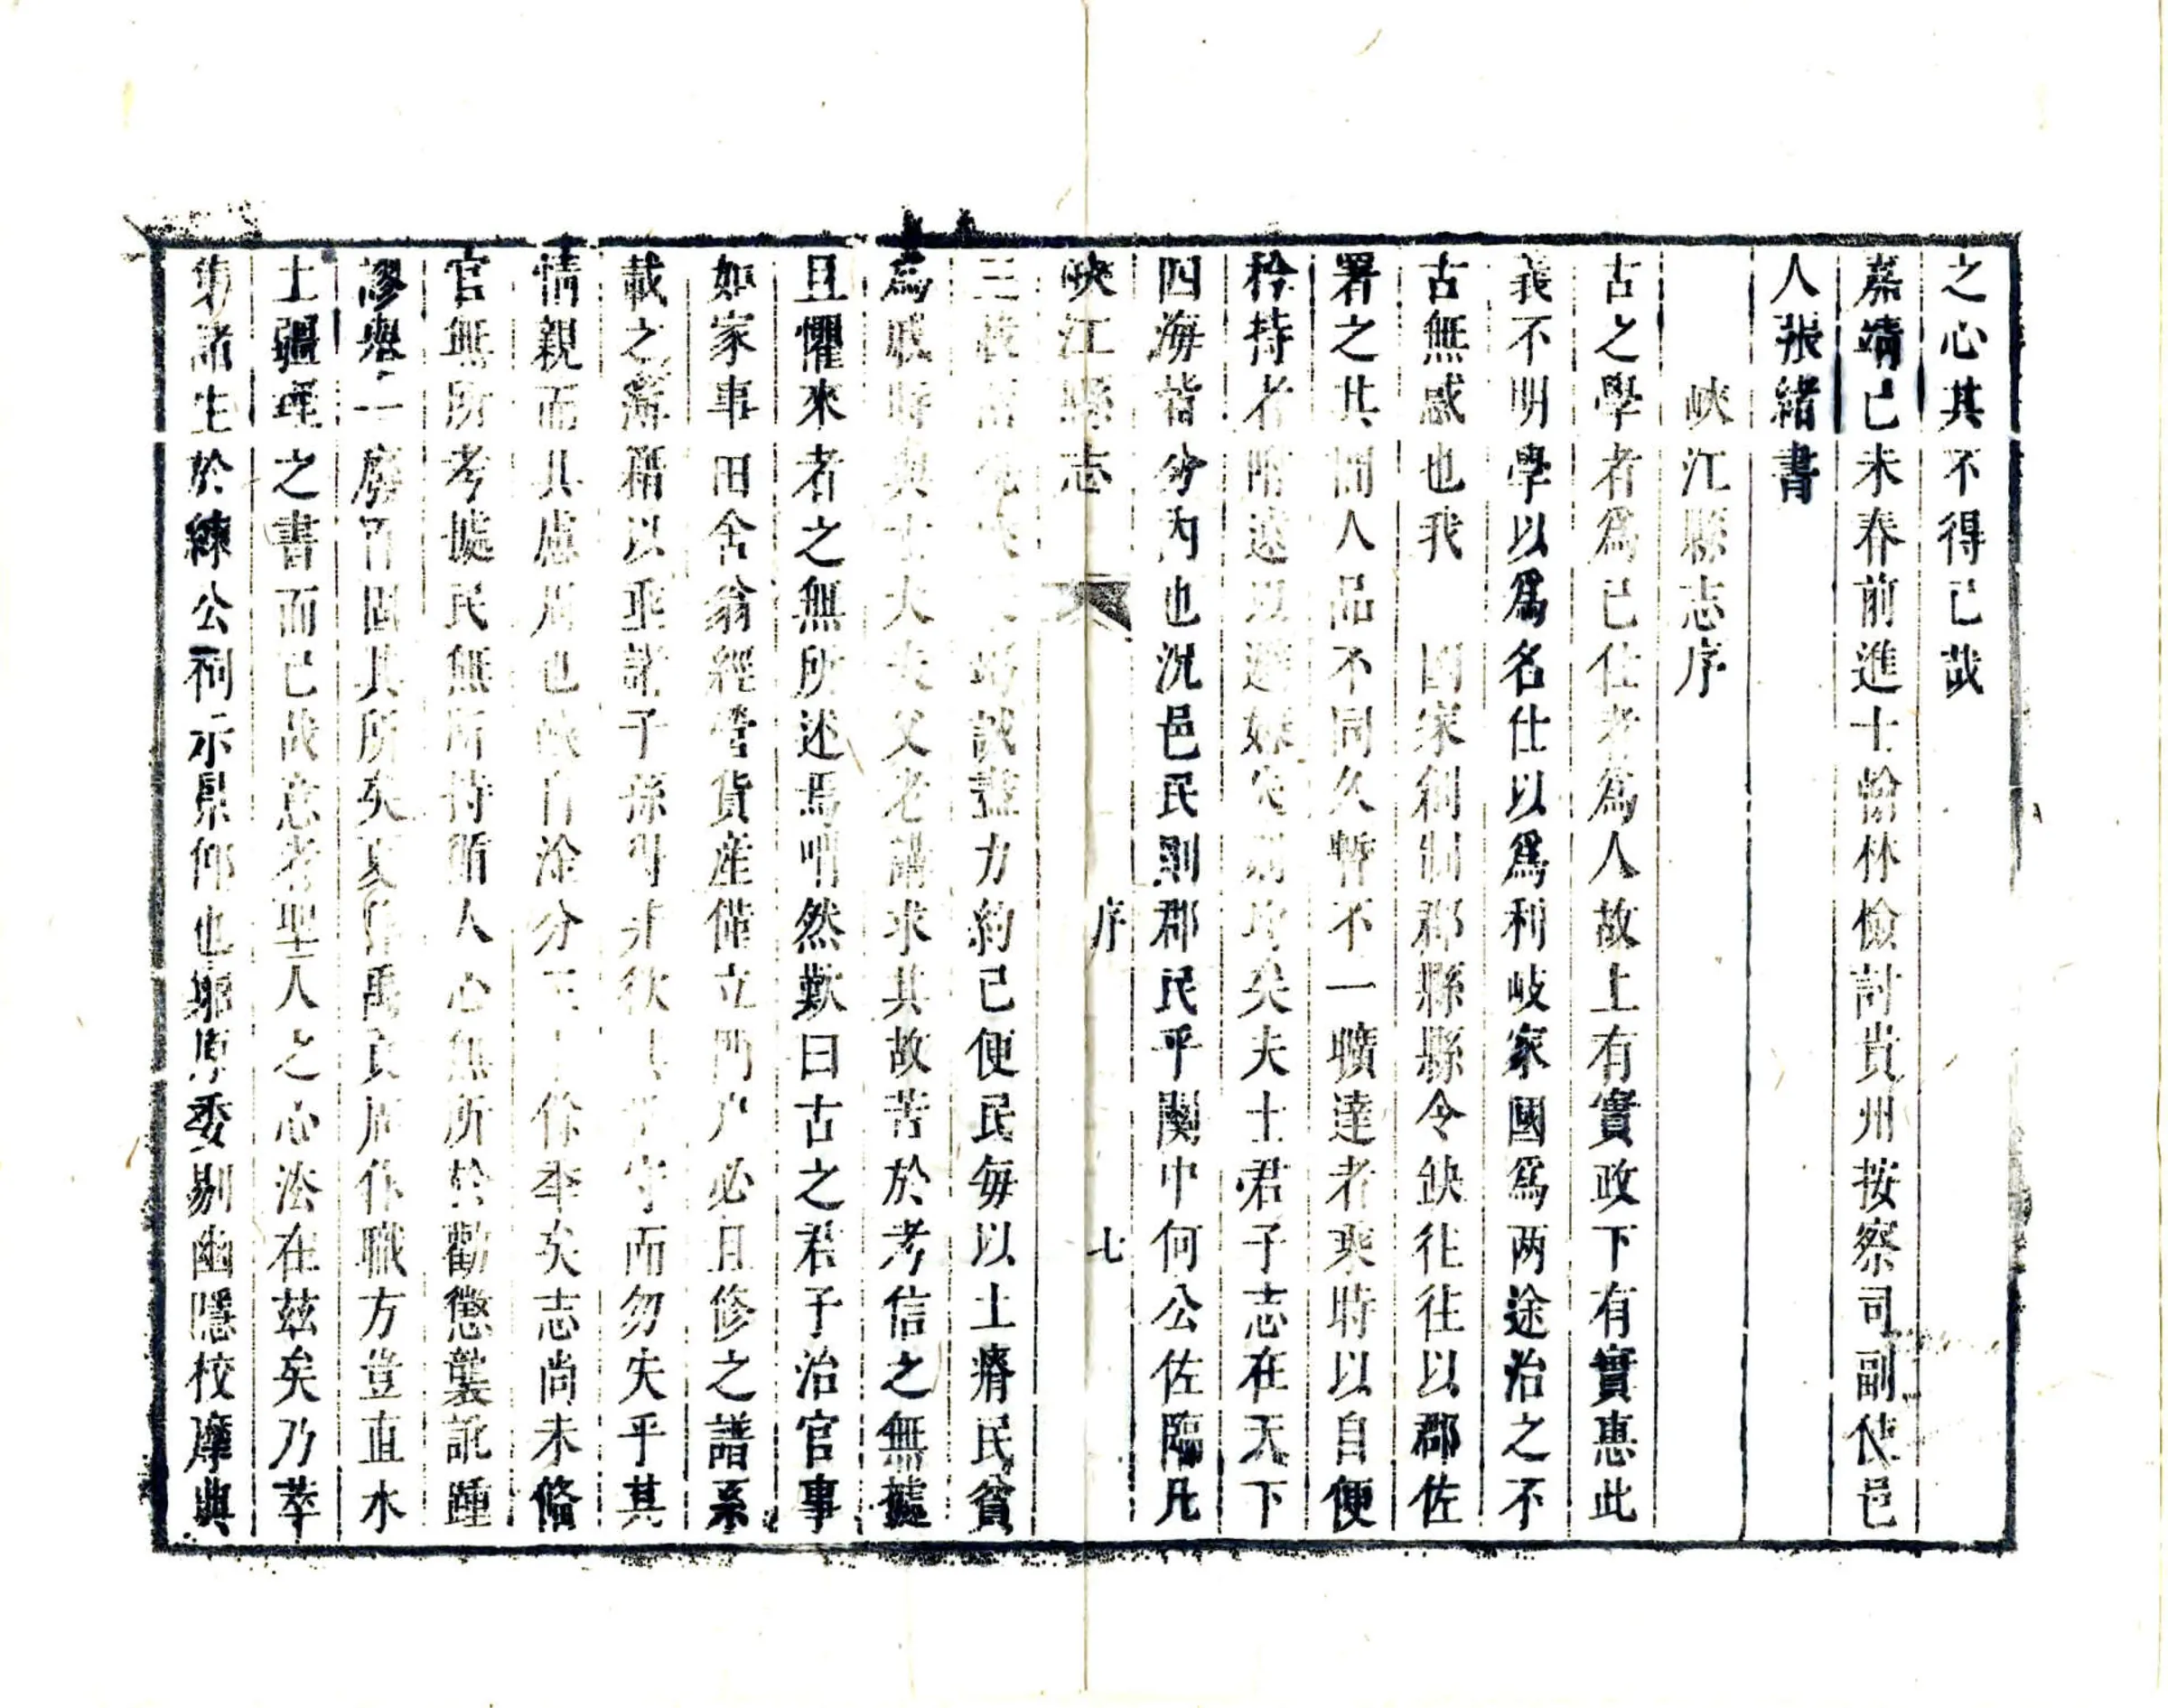 之心其不得已哉
嘉靖已未春前進士翰林檢討貴州按察司副使邑
人張緒書
峽江縣志序
古之學者爲已仕者爲人故上有實政下有實惠此
義不明學以爲名仕以爲利岐家國爲两途治之不
古無惑也我 國家創制郡縣縣令缺往往以郡佐
署之其間人品不同久暫不一曠達者乘時以自便
矜持者 遠以避嫌失 均矣夫士君子志在天下
四海皆分內也况邑民則郡民乎閩中何公佐臨凡
峽江縣志 序 七
三 誠盡力約已便民每以土瘠民貧
爲 時與士大夫父老講求其故苦於考信之無據
且懼來者之無所述焉喟然歎曰古之君子治官事
如家事田舍翁經營貨産僅立門户必且修之譜系
載之 以垂諸子孫 守而勿失乎其
情親而其慮周也峽自淦分 矣志尚未脩
官無所考據民無所持循人心無所於勸懲襲訛踵
謬與二 固其所矣 禹貢周作職方豈直水
土疆理之書而已哉意者聖人之心法在兹矣乃萃
集諸生於練公祠示景仰也 原委剔幽隱校摩典